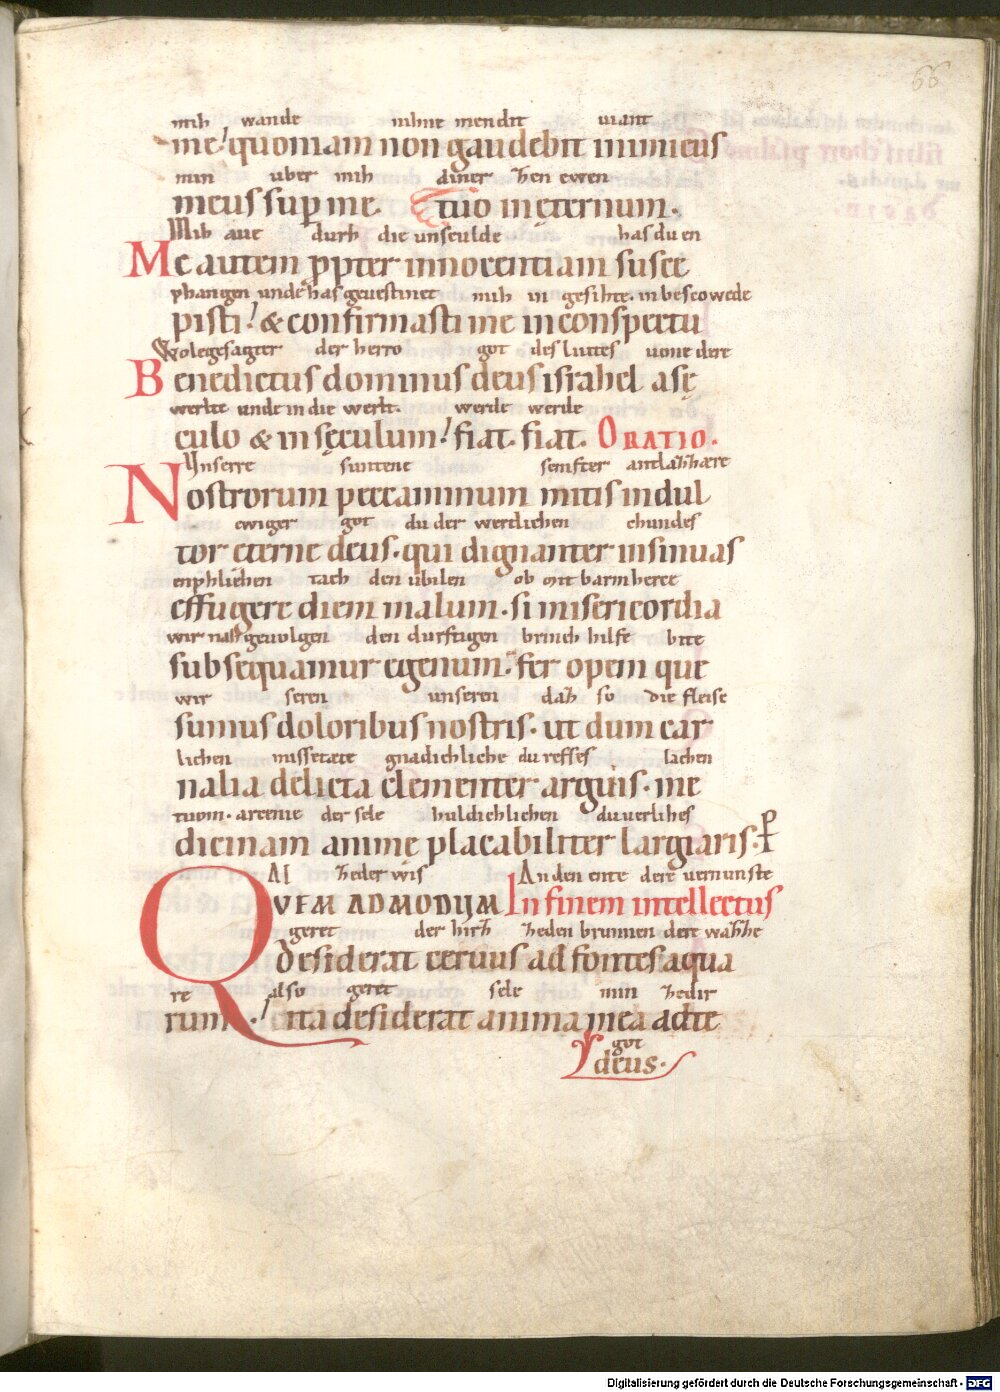 66
mih wande mihne mendit uiant
me! quoniam non gaudebit inimicus
min uber mih diner hen ewen
meus sup me. tuo in ęternum.
Mih aue durh die unsculde has du en
Me autem ppter innocentiam susce
phangen unde has geuestinet mih in gesihte. in bescowede
pisti! & confirmasti me in conspectu
Wolegesagter der herro got des liutes uone dere
Benedictus dominus deus israhel a sę
werlte unde in die werlt. werde werde
culo & in sęculum! fiat. fiat. ORATIO.
Unserre suntene semfter antlahhare
Nostrorum peccaminum mitis indul
ewiger got du der werclichen chundes
tor eterne deus. qui dignanter insinuas
enphliehen tach den ubilen ob mit barmherce
effugere diem malum. si misericordia
wir nah geuolgen den durftigen brinch hilfe bite
subsequamur egenum. fer opem que
wir seren unseren dah so die fleise
sumus doloribus nostris. ut dum car
lichen missetate gnadichliche du refses lachen
nalia delicta clementer arguis. me
tuom. arcenie der sele huldichlichen du uerlihes
dicinam anime placabiliter largiaris. P
Al heder wis An den ente dere uernunste
QVEM ADMODUM In finem intellectus
geret der hirh heden brunnen dere wahhe
desiderat ceruus ad fontes aqua
re also geret sele min hedir
rum. ! ita desiderat anima mea ad te
got
deus.
Digitalisierung gefördert durch die Deutsche Forschungsgemeinschaft - DFG